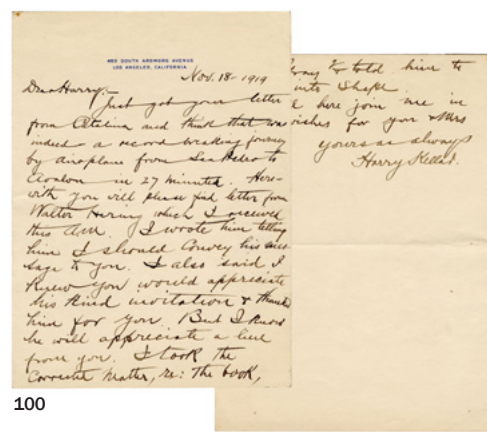 463 SOUTH ARDMORE AVENUE
LOS ANGELES, CALIFORNIA
Nov. 18 - 1919
Dear Harry:-
Just got your letter
from Catalina and think that was
indeed a record breaking journey
by airoplane from San Pedro to
Avalon in 27 minutes. Here-
with you will please find letter from
Walter which I received
this A.M. I wrote him telling
him I should convey his mes-
sage to you. I also said I
knew you would appreciate
his kind invitation & thanked
him for you. But I know
he will appreciate a line
from you. I took the
matter, re: the book,
& told him to
into shape.
here join me in
wishes for you & Mrs
yours as always
Harry Kellar.
100